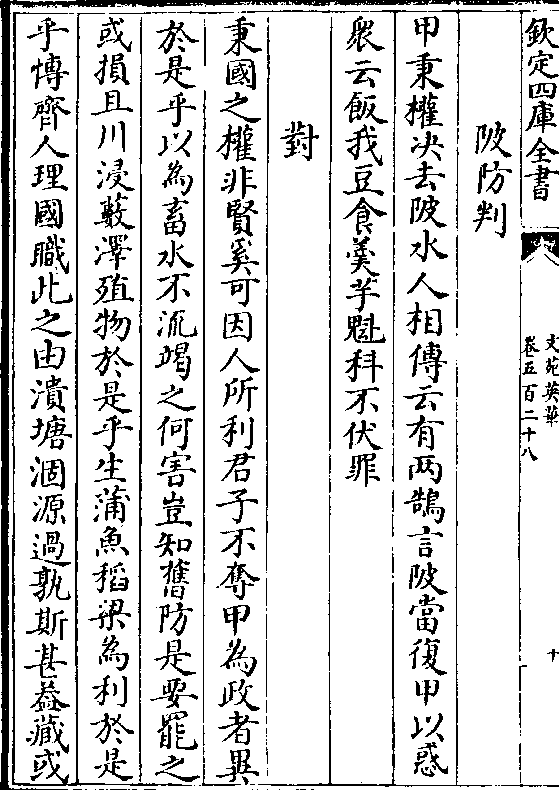 欽定四庫全書
文苑英華
卷五百二十八
十
陂防判
甲秉權决去陂水人相傳云有两鵠言陂當復甲以惑
衆云飯我豆食羮芋魁科不伏罪
對
秉國之權非賢奚可因人所利君子不奪甲為政者異
於是乎以為畜水不流竭之何害豈知舊防是要罷之
或損且川浸藪澤殖物於是乎生蒲魚稻梁為利於是
乎慱齊人理國職此之由潰塘涸源過孰斯甚葢藏或